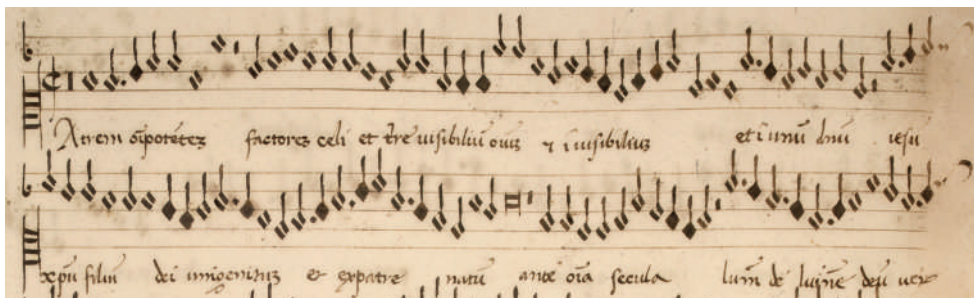 Atrem oīpotētez factorez celi et tr̄e uisibiliū oīuz ⁊ īuisibiliuz et ī unū dnū iesu
xp̄u filiū dei unigenitus et expatre natū ante oīa secula lum̄ de luīne deū uer